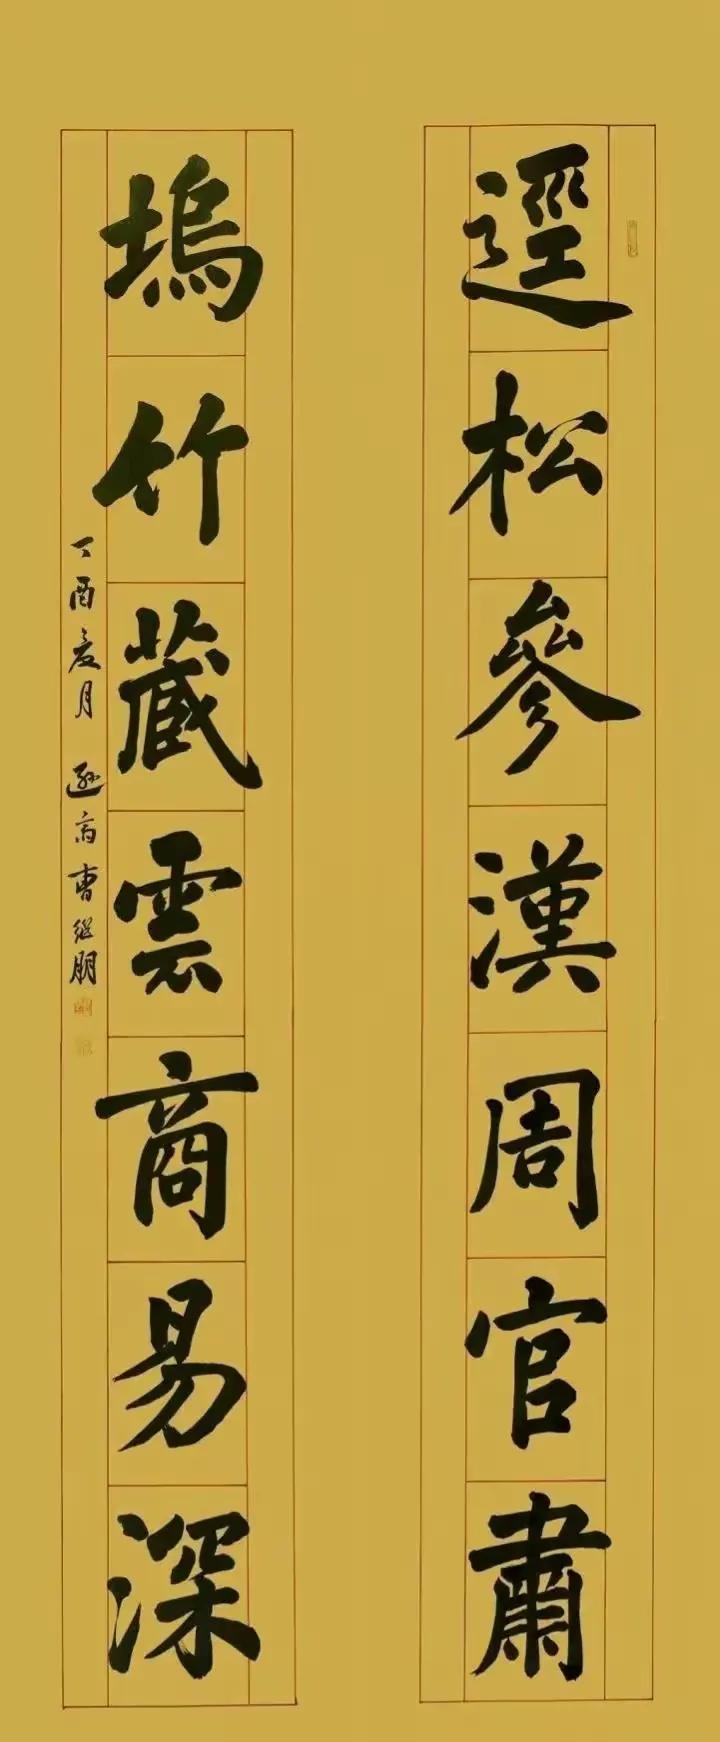 逕松參漢周官肅
塢竹藏雲商易深
丁酉夏月 遜齋曹繼朋